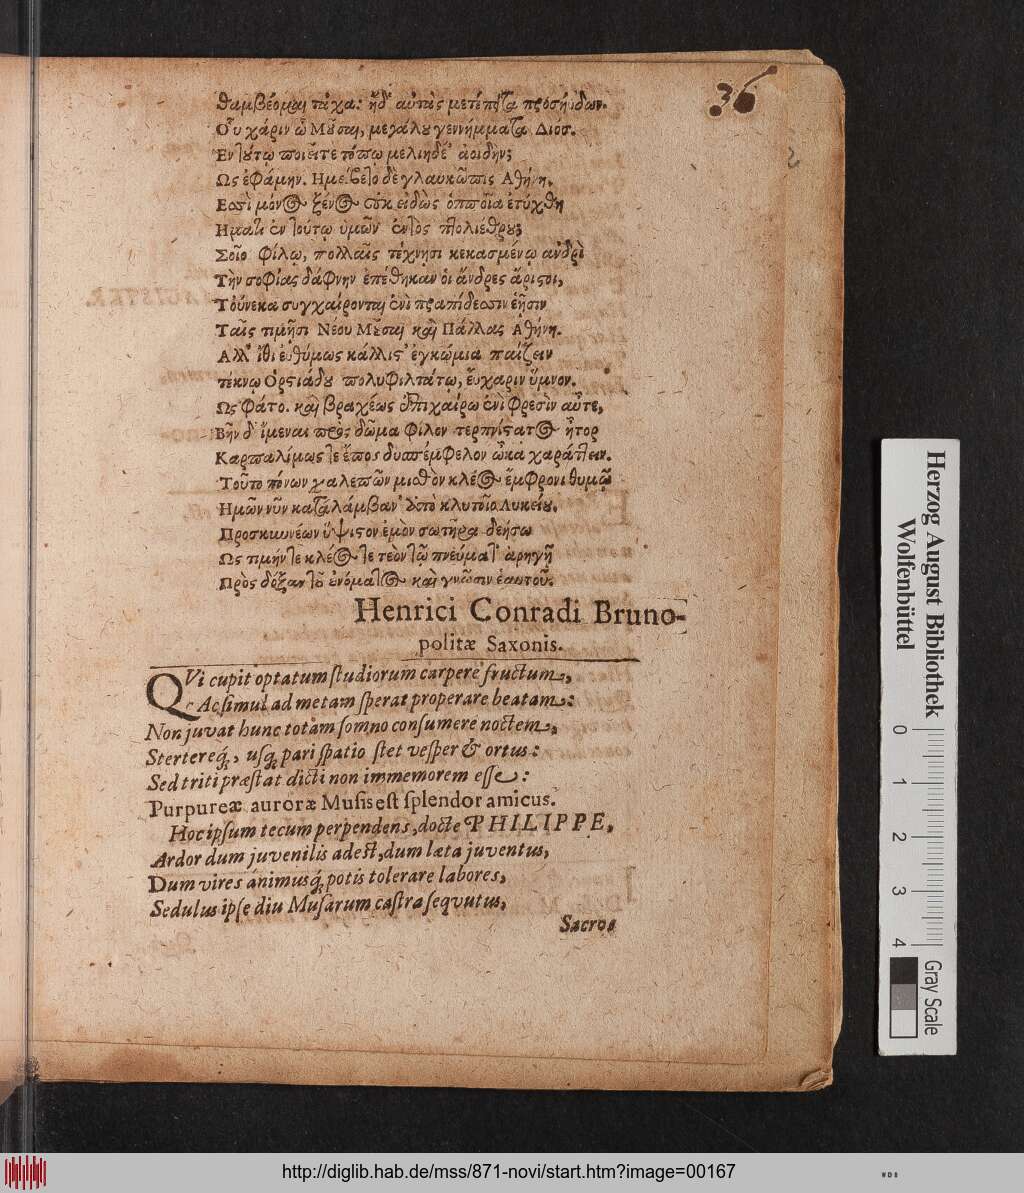 36
2
θαμβέομαι τάχα: ἠδ' αὐτὰς μετέπειτα προσηύδων.
Οὗ χάριν ὦ Μῦσαι, μεγάλου γεννήμματα Διός.
Ἐν τούτῳ ποιεῖτε τόπῳ μελιηδέ' ἀοιδήν;
Ὣς ἐφάμην. Ημείβετο δὲ γλαυκῶπις Αθήνη.
Εσσὶ μόνος ξένος οὐκ εἰδὼς ὁπποῖα ἐτύχθη
Ηματι ἐν τούτῳ υμῶν ἐντὸς πτολιέθρου;
Σοῖο φίλῳ, πολλαῖς τέχνησι κεκασμένῳ ανδρὶ
Τὴν σοφίας δάφνην ἐπέθηκαν ὁι ἄνδρες ἄριστοι,
Τούνεκα συγχαίρονται ἐνὶ πραπίδεσσιν ἑῇσιν
Ταῖς τιμῇσι Νέου Μοῦσαι καὶ Πάλλας Αθήνη.
Αλλ' ἴθι ἐυθύμως κάλλιστ' ἐγκώμια παίζειν
τέκνῳ Ορστιάδου πολυφιλτάτῳ, ἔυχαριν ὕμνον.
Ως φάτο. καὶ βραχέως ἐπιχαίρω ἐνὶ φρεσὶν αὖτε,
Βῆν δ' ἴμεναι πρὸς δῶμα φίλεν τερπνίστατος ἦτορ
Καρπαλίμως τε ἔπος δυσπέμφελον ὦκα χαράττειν.
Τοῦτο πόνων χαλεπῶν μισθὸν κλέος ἔμφρονι θυμῷ
Ημῶν νῦν καταλάμβαν' ἀπὸ κλυτοῖο Λυκείου.
Προσκυνέων ὕψιστον ἐμὸν σωτῆρα δεήσω
Ως τιμήν τε κλέος τε τεὸν τῷ πνεύματ' ἀρηγῇ
Πρὸς δόξαν τοῦ ὀνόματος καὶ γνῶσιν ἑαυτοῦ.
Henrici Conradi Bruno-
politæ Saxonis.
QVi cupit optatum studiorum carpere fructum,
Ac simul ad metam sperat properare beatam:
Non juvat hunc totam somno consumere noctem,
Stertereq;, usq; pari spatio stet vesper & ortus:
Sed triti præstat dicti non immemorem esse:
Purpureæ auroræ Musis est splendor amicus.
Hoc ipsum tecum perpendens, docte PHILIPPE,
Ardor dum juvenilis adest, dum læta juventus,
Dum vires animusq; potis tolerare labores,
Sedulus ipse diu Musarum castra sequutus,
Sacros
Herzog August Bibliothek
Wolfenbüttel
0 1 2 3 4
Gray Scale
http://diglib.hab.de/mss/871-novi/start.htm?image=00167
WDB